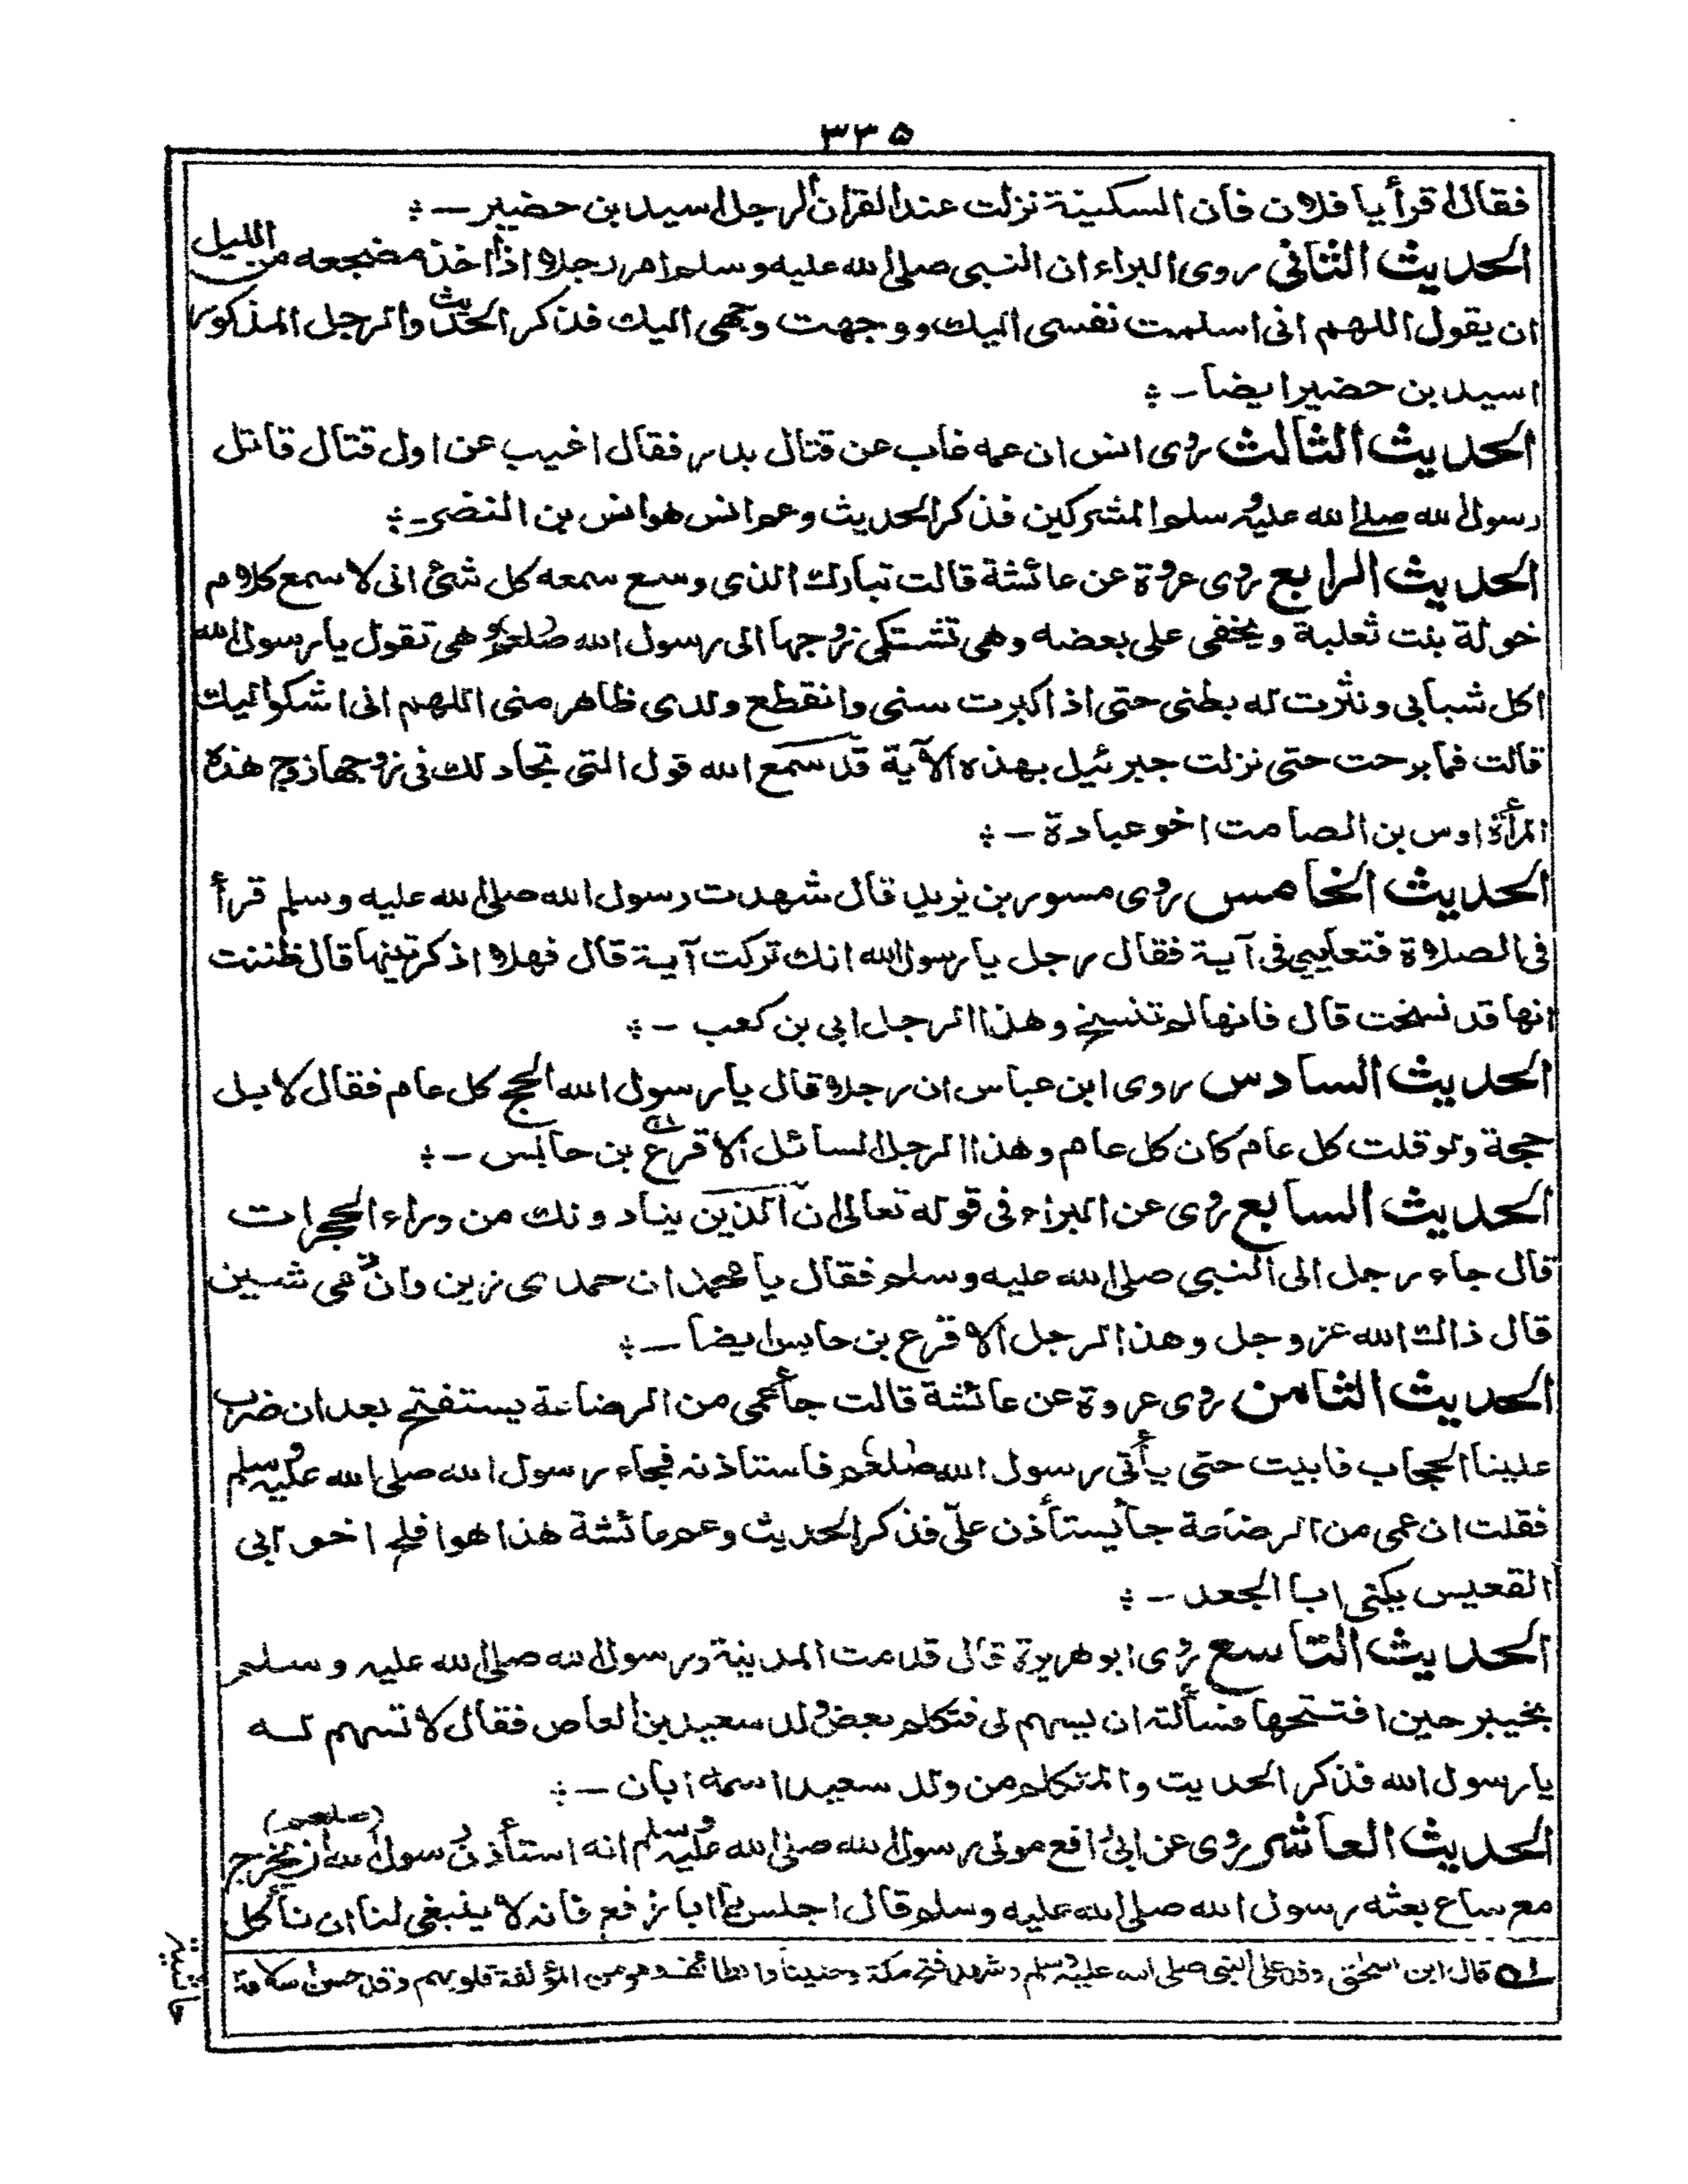 ٣٣٥
فقال اقرأ يا فلان فان السكينة نزلت عند القرآن الرجل اسيد بن حضير ـ
الحديث الثانى روى البراء ان النبى صلى الله عليه وسلم امر رجلا اذا اخذ مضجعه من الليل
ان يقول اللهم انى اسلمت نفسى اليك ووجهت وجهى اليك فذكر الحديث والرجل المذكور
اسيد بن حضير ايضا ـ
الحديث الثالث روى انس ان عمه غاب عن قتال بدر فقال اغيب عن اول قتال قاتل
رسول الله صلى الله عليه وسلم المشركين فذكر الحديث وعم انس هو انس بن النضر ـ
الحديث الرابع روى عروة عن عائشة قالت تبارك الذى وسع سمعه كل شئ انى لاسمع كلام
خولة بنت ثعلبة ويخفى على بعضه وهى تشتكى زوجها الى رسول الله صلعم وهى تقول يا رسول الله
اكل شبابى ونثرت له بطنى حتى اذا كبرت سنى وانقطع ولدى ظاهر منى اللهم انى اشكو اليك
قالت فما برحت حتى نزلت جبرئيل بهذه الآية قد سمع الله قول التى تجادلك فى زوجها زوج هذه
المرأة اوس بن الصامت اخو عبادة ـ
الحديث الخامس روى مسور بن يزيد قال شهدت رسول الله صلى الله عليه وسلم قرأ
فى الصلاة فتعايى فى آية فقال رجل يا رسول الله انك تركت آية قال فهلا اذكرتنيها قال ظننت
انها قد نسخت قال فانها لم تنسخ وهذا الرجل ابى بن كعب ـ
الحديث السادس روى ابن عباس ان رجلا قال يا رسول الله الحج كل عام فقال لا بل
حجة ولو قلت كل عام كان كل عام وهذا الرجل السائل الاقرع بن حابس ـ
الحديث السابع روى عن البراء فى قوله تعالى ان الذين ينادونك من وراء الحجرات
قال جاء رجل الى النبى صلى الله عليه وسلم فقال يا محمد ان حمدى زين وان ذمى شين
قال ذالك الله عز وجل وهذا الرجل الاقرع بن حابس ايضا ـ
الحديث الثامن روى عروة عن عائشة قالت جأ عمى من الرضاعة يستفتح بعد ان ضرب
علينا الحجاب فابيت حتى يأتى رسول الله صلعم فاستاذنه فجاء رسول الله صلى الله عليه وسلم
فقلت ان عمى من الرضاعة جأ يستأذن علىّ فذكر الحديث وعم عائشة هذا هو افلح اخو ابى
القعيس يكنى ابا الجعد ـ
الحديث التاسع روى ابو هريرة قال قدمت المدينة ورسول الله صلى الله عليه وسلم
بخيبر حين افتتحها فسألته ان يسهم لى فتكلم بعض ولد سعيد بن العاص فقال لا تسهم له
يا رسول الله فذكر الحديث والمتكلم من ولد سعيد اسمه ابان ـ
الحديث العاشر روى عن ابى رافع مولى رسول الله صلى الله عليه وسلم انه استأذن رسول الله (صلعم) ان يخرج
مع ساع بعثه رسول الله صلى الله عليه وسلم قال اجلس يا ابا رافع فانه لا ينبغى لنا ان نأكل
له قال ابن اسحق وفد على النبى صلى الله عليه وسلم وشهد فتح مكة وحنينا والطائف وهو من المؤلفة قلوبهم وقد حسن اسلامه
حاشيه